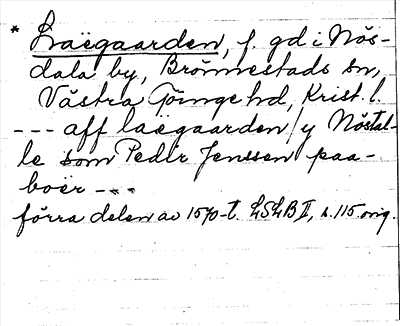 * Laëgaarden, f. gd i Nös-
dala by, Brönnestads sn,
Västra Göinge hd, Krist. l.
--- aff laëgaarden / y Nöstal-
le som Pedír Jenssen paa-
boër ---
förra delen av 1570-t. LSLB II, s. 115 orig.